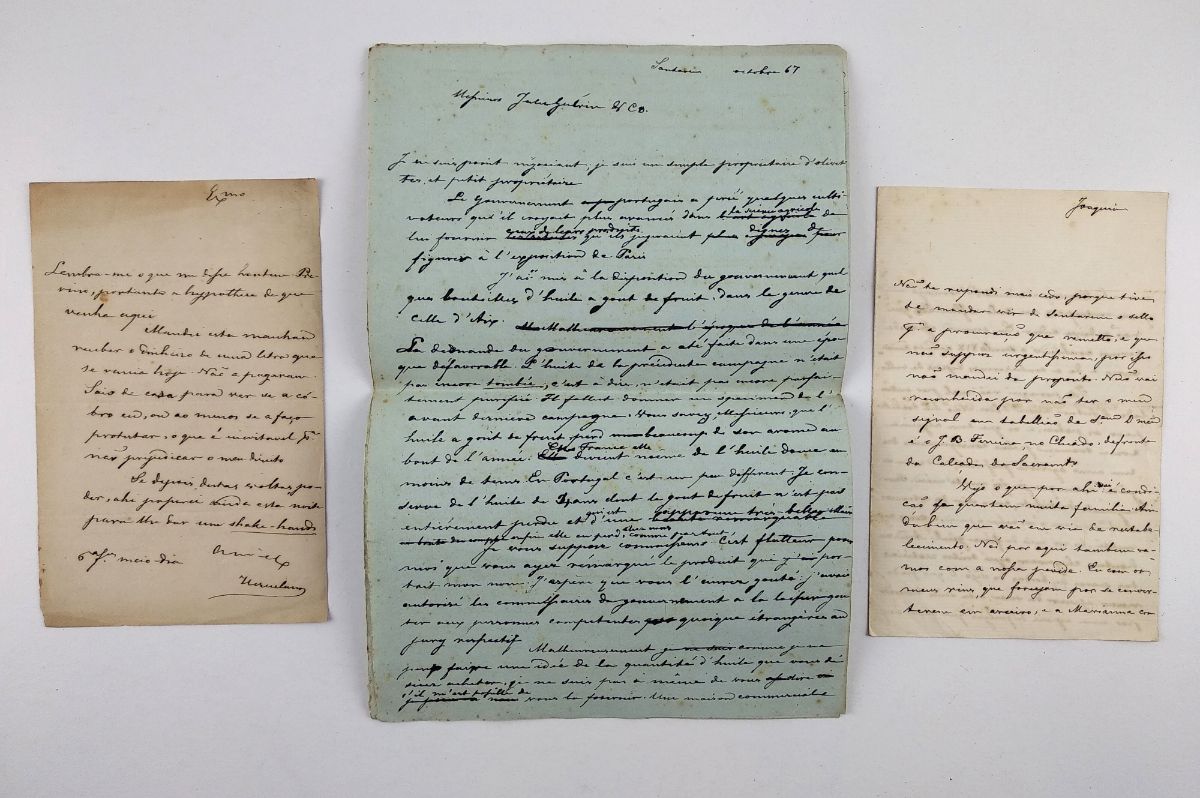 Exmo
Lembra-me o que me disse hontem
portanto a hypothese de que
venha aqui
Mandei esta manhan
receber o dinheiro de uma letra que
se vencia hoje. Não a pagaram.
Saio de casa para ver se a co-
bro eu, ou ao menos se a faço
protestar, o que é inevitavel
não prejudicar o meu direito
Se depois destas voltas po-
der, ahi passarei ainda esta noite
para lhe dar um shake-hands
6ª fª meio-dia
Herculano
octobre 67
Messieurs Jules Guérin & Co.
Je ne suis point négociant; je suis un simple propriétaire d'olivet-
tes, et petit propriétaire
Le Gouvernement portugais a prié quelques culti-
vateurs qu'il croyait plus avancés dans la science agricole de
lui fournir ceux de leurs produits qu'ils jugeraient dignes de
figurer à l'exposition de Paris
J'ai mis à la disposition du gouvernement quel
ques bouteilles d'huile a gout de fruit, dans le genre de
celle d'Aix.
La demande du gouvernement a été faite dans une épo-
que défavorable. L'huile de la précédente campagne n'était
pas encore tombée, c'est à dire, n'était pas encore parfai-
tement purifiée. Il fallut donner un specimen de l'
avant dernière campagne. Vous savez, Messieurs, que l'
huile a goût de fruit perd beaucoup de son arome au
bout de l'année. En France elle devient même de l'huile douce en
moins de tems. En Portugal c'est un peu different. Je con-
serve de l'huile de 3 ans dont le gout de fruit n'est pas
entièrement perdu et qui est d'une
Je vous suppose connaisseurs. C'est flatteur pour
moi que vous ayez remarqué le produit qui y por-
tait mon nom. J'espère que vous l'aurez gouté: j'avais
autorisé les commissaires du gouvernement à la laisser gou-
ter aux personnes competentes quoique étrangères au
jury respectif
Malheureusement comme je ne
puis faire une idée de la quantité d'huile que vous dé-
sirez acheter, je ne suis pas à même de vous
s'il m'est possible de vous la fournir. Une maison commerciale
Joaquim
Não te respondi mais cedo, porque tive
de mandar vir de Santarem o sello
pª a procuração que remetto, e que
não suppuz urgentissima, por isso
não mandei de proposito. Não vai
reconhecida por não ter o meu
signal em tabellião de Lxª senão
é o J. B. Ferreira no Chiado, defronte
da Calçada do Sacramto
Vejo o que por ahi vai é condi-
ção
que vai em via de restabe-
lecimento. Nós por aqui tambem va-
mos com a nossa perda. Eu com os
meus rins, que forcejam por se conver-
terem em areeiro, e a Marianna co